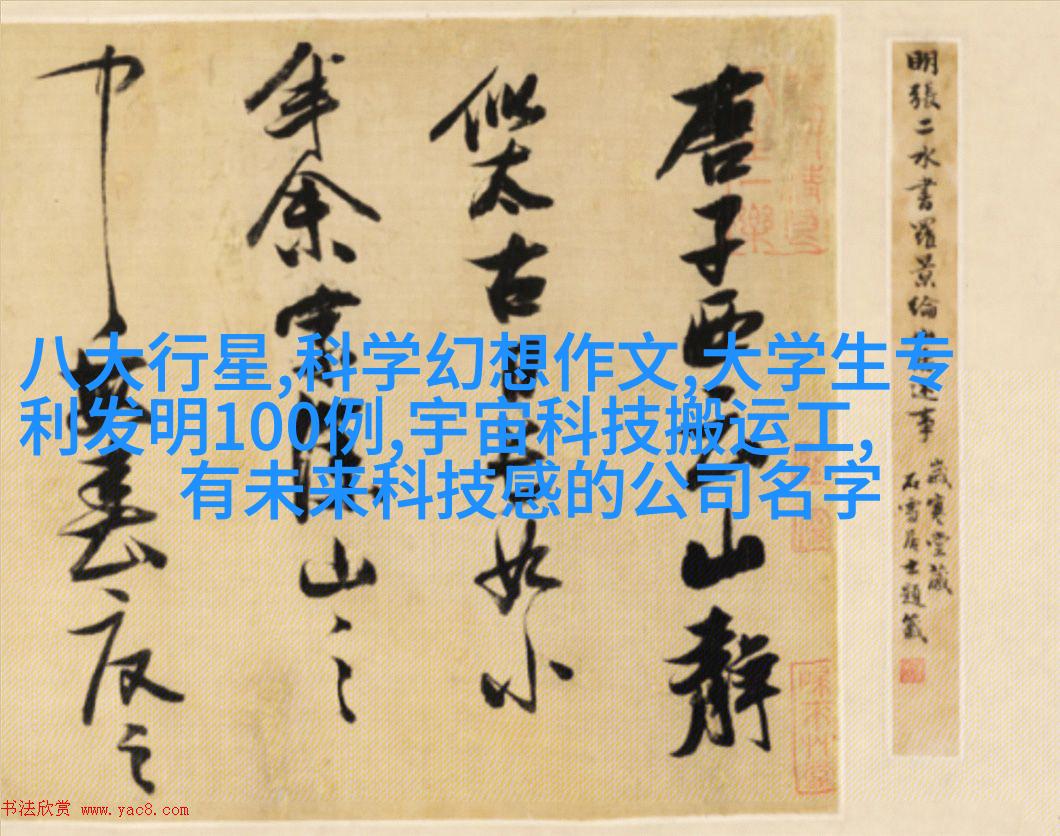 八大行星,科学幻想作文,大学生专
利发明100例,宇宙科技搬运工,
有未来科技感的公司名字
明張二水書羅景綸山居述事
歲寒堂藏
石雪居士題籤
唐子西云山靜
似太古日長如小
年余家深山之
中每春夏之
书法欣赏 www.yac8.com